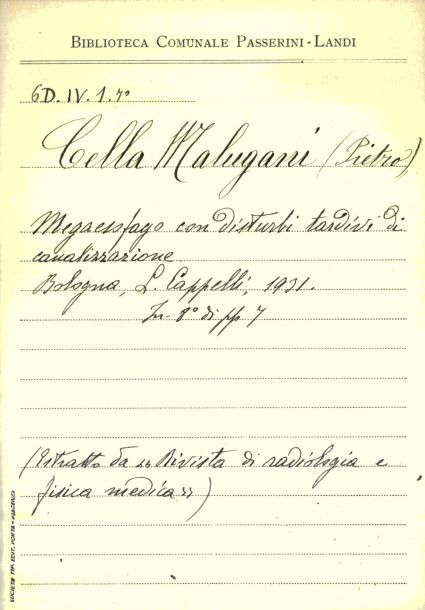 BIBLIOTECA COMUNALE PASSERINI-LANDI
6D. IV. 1. 7°
Cella Malugani (Pietro)
Megaesofago con disturbi tardivi di
canalizzazione
Bologna, L. Cappelli, 1931.
In 8° di pp 7
(Estratto da "Rivista di radiologia e
fisica medica")
SOCIETÀ TIP. EDIT. PORTA - PIACENZA